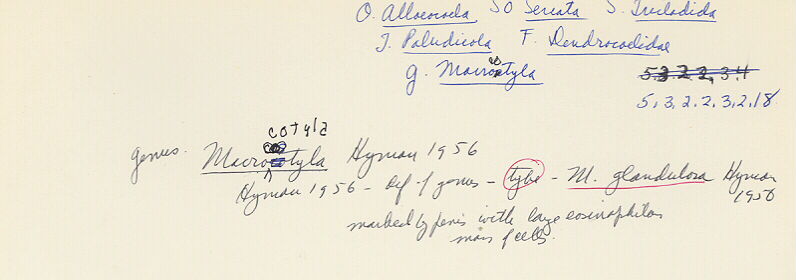 O. Alloeocoela SO Seriata S. Tricladida
T. Paludicola F. Dendrocoelidae
g. Macrocotyla
5.3.2.2.3.4
5.3.2.2.3.2.18
cotyla
genus. Macrocotyla Hyman 1956
Hyman 1956 - Def. of genus - type - M. glandulosa Hyman
1956
marked by penis with large eosinophilos
mass of cells.